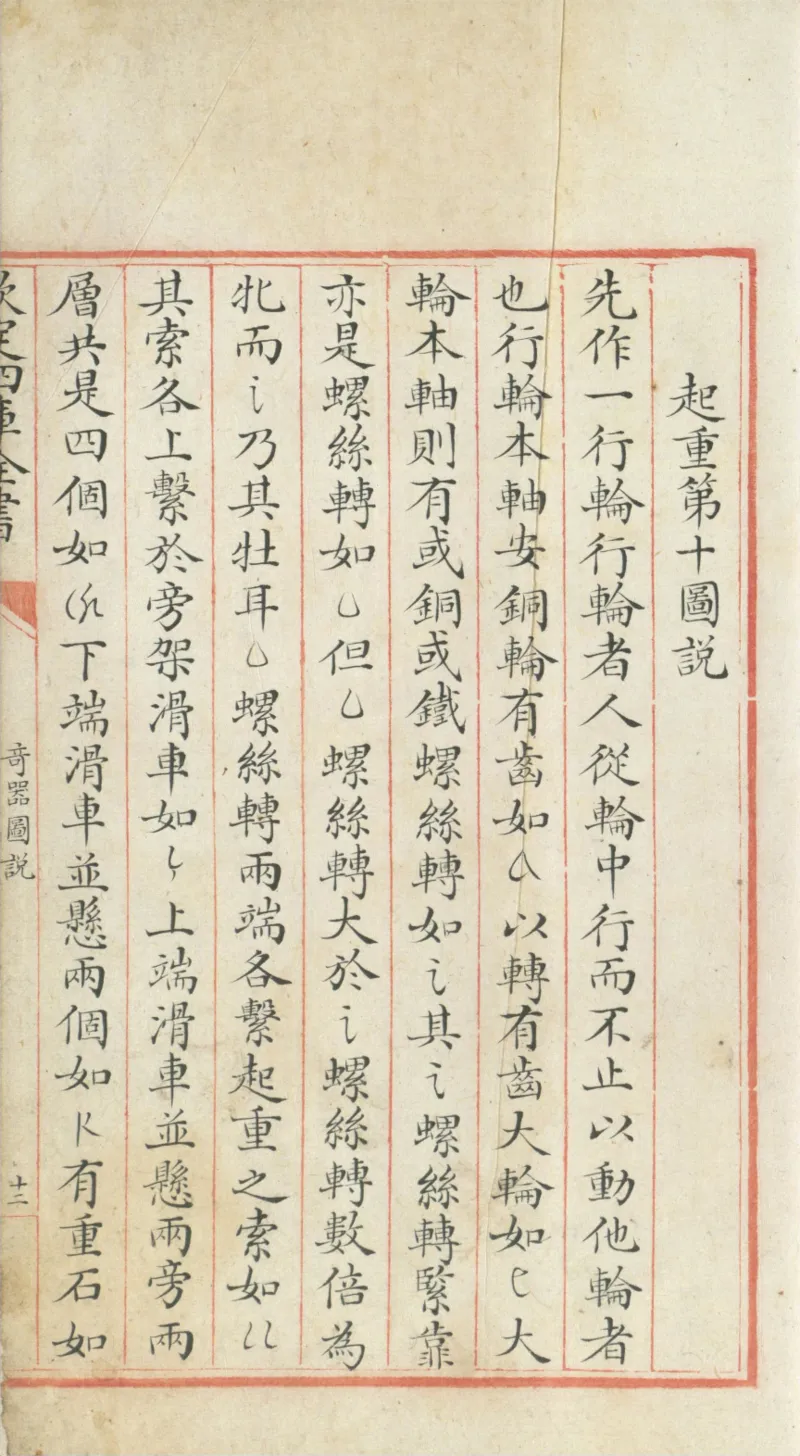 起重第十圖説
先作一行輪行輪者人從輪中行而不止以動他輪者
也行輪本軸安銅輪有齒如以轉有齒大輪如大
輪本軸則有或銅或鐵螺絲轉如其螺絲轉緊靠
亦是螺絲轉如但螺絲轉大於螺絲轉數倍為
牝而乃其牡耳螺絲轉兩端各繫起重之索如
其索各上繫於旁架滑車如上端滑車並懸兩旁兩
層共是四個如下端滑車並懸兩個如有重石如
欽定四庫全書
奇器圖説
十二